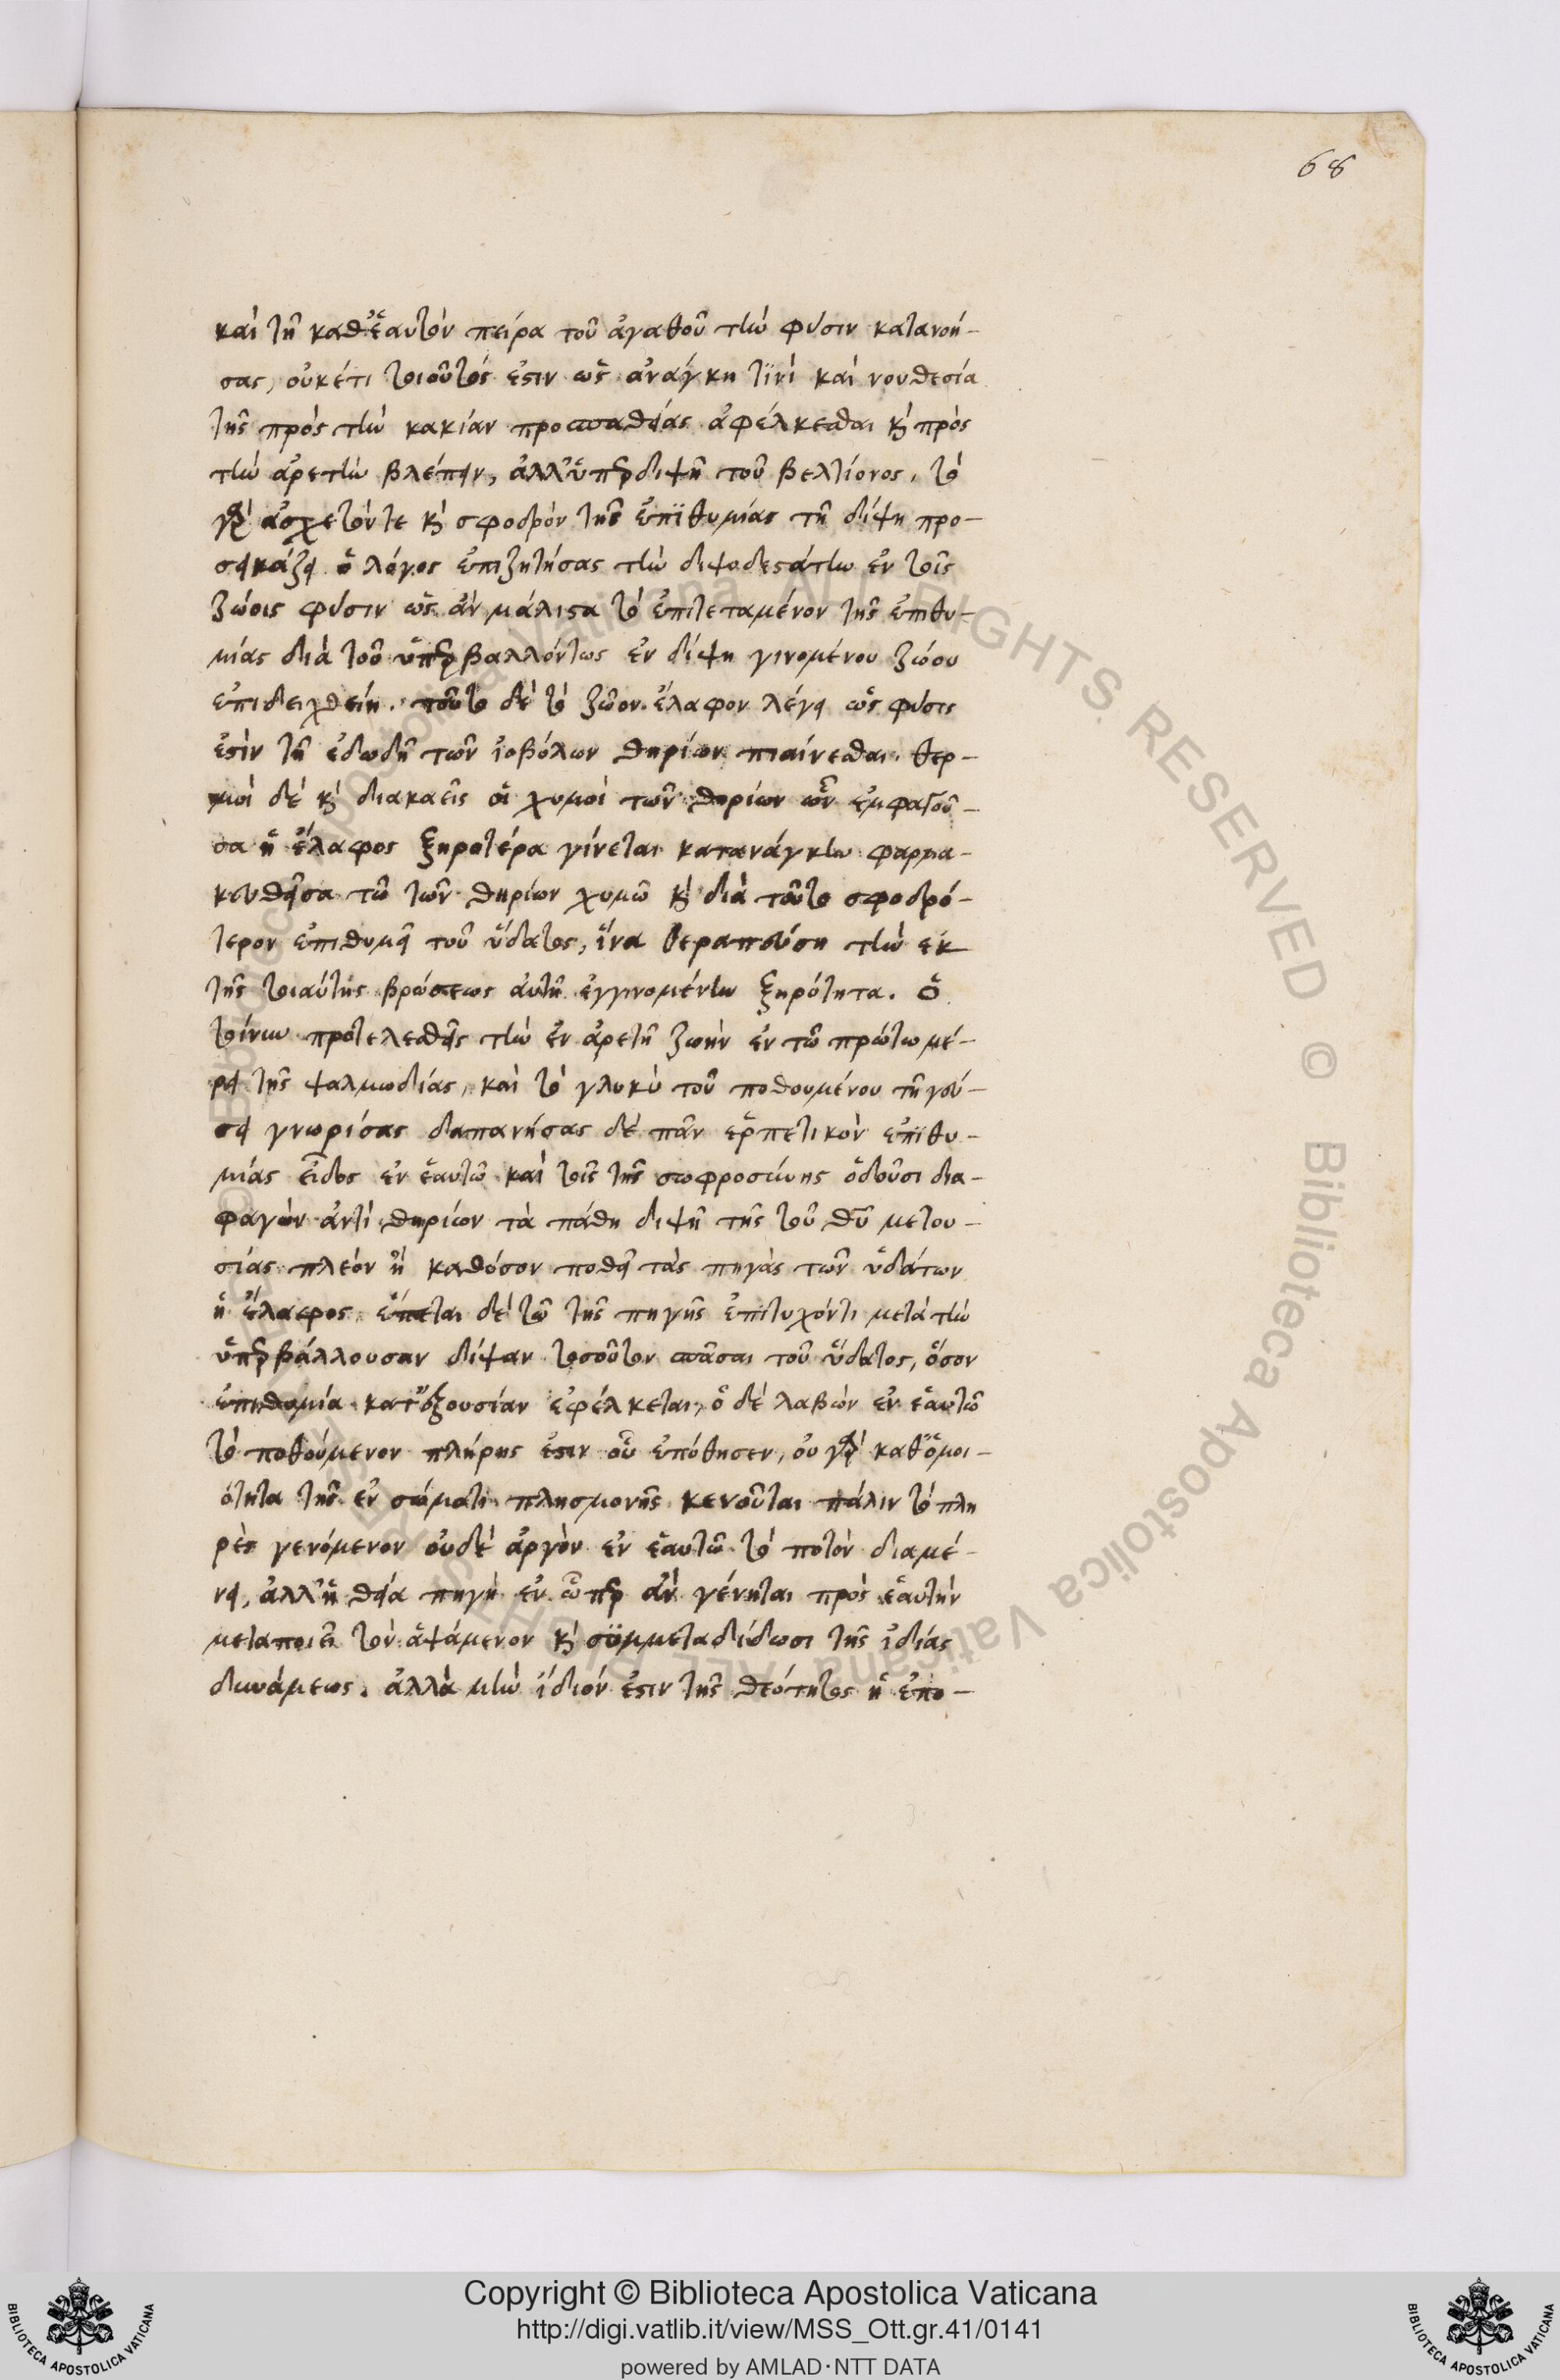 68
καὶ τῇ καθ' ἑαυτὸν πείρα τοῦ ἀγαθοῦ τὴν φύσιν κατανοή-
σας, οὐκέτι τοιοῦτός ἐστιν ὡς ἀνάγκη τϊνὶ καὶ νουθεσία
τῆς πρὸς τὴν κακίαν προσπαθείας ἀφέλκεσθαι κὶ πρὸς
τὴν ἀρετὴν βλέπειν, ἀλλ' ὑπερδιψῇ τοῦ βελτίονος, τὸ
γὰρ ἄσχετόν τε κὶ σφοδρὸν τῆς ἐπϊθυμίας τῇ δίψη προ-
σεικάζει ὁ λόγος ἐπιζητήσας τὴν διψοδεστάτην ἐν τοῖς
ζώοις φύσιν ὡς ἂν μάλιστα τὸ ἐπιτεταμένον τῆς ἐπιθυ-
μίας διὰ τοῦ ὑπερβαλλόντως ἐν δίψη γινομένου ζώου
ἐπιδειχθείη. τοῦτο δὲ τὸ ζῶον ἔλαφον λέγει ὡς φύσις
ἐστὶν τῇ ἐδωδῇ τῶν ἰοβόλων θηρίων πιαίνεσθαι. θερ-
μοὶ δὲ κὶ διακαεῖς οἱ χυμοὶ τῶν θηρίων ὧν ἐμφαγοῦ-
σα ἡ ἔλαφος ξηροτέρα γίνεται κατανάγκην φαρμα-
κευθεῖσα τῶ τῶν θηρίων χυμῶ κὶ διὰ τοῦτο σφοδρό-
τερον ἐπιθυμεῖ τοῦ ὕδατος, ἵνα θεραπεύση τὴν ἐκ
τῆς τοιαύτης βρώσεως αὐτῇ ἐγγινομένην ξηρότητα. Ὁ
τοίνυν προτελεσθεὶς τὴν ἐν ἀρετῇ ζωὴν ἐν τῶ πρώτω μέ-
ρει τῆς ψαλμωδίας, καὶ τὸ γλυκὺ τοῦ ποθουμένου τῇ γεύ-
σει γνωρίσας δαπανήσας δὲ πᾶν ἑρπετικὸν ἐπϊθυ-
μίας εἶδος ἐν ἑαυτῶ καὶ τοῖς τῆς σωφροσύνης ὀδοῦσι δια-
φαγὼν ἀντὶ θηρίων τὰ πάθη διψῇ τῆς τοῦ θῦ μετου-
σίας πλέον ἢ καθόσον ποθεῖ τὰς πηγὰς τῶν ὑδάτων
ἡ ἔλαφος. ἕπεται δὲ τῶ τῆς πηγῆς ἐπιτυχόντι μετὰ τὴν
ὑπερβάλλουσαν δίψαν τοσοῦτον σπᾶσαι τοῦ ὕδατος, ὅσον
ἐπιθυμία κατ' ἐξουσίαν ἐφέλκεται, ὁ δὲ λαβὼν ἐν ἑαυτῶ
τὸ ποθούμενον πλήρης ἐστιν οὗ ἐπόθησεν, οὐ γὰρ καθ' ὁμοι-
ότητα τῆς ἐν σώματι πλησμονῆς κενοῦται πάλιν τὸ πλη
ρὲς γενόμενον οὐδὲ ἀργὸν ἐν ἑαυτῶ τὸ ποτὸν διαμέ-
νει, ἀλλ' ἡ θεία πηγὴ ἐν ὧπερ ἂν γένηται πρὸς ἑαυτὴν
μεταποιεῖ τὸν ἁψάμενον κὶ συμμεταδίδωσι τῆς ἰδίας
δυνάμεως. ἀλλὰ μὴν ἴδιόν ἐστιν τῆς θεότητος ἡ ἐπο-
Copyright © Biblioteca Apostolica Vaticana
http://digi.vatlib.it/view/MSS_Ott.gr.41/0141
powered by AMLAD·NTT DATA